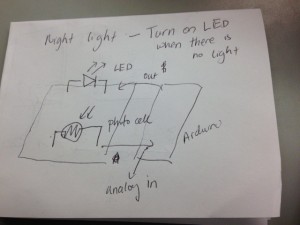 Night light – Turn on LED
when there is
no light
LED
out
photo cell
Arduino
analog in